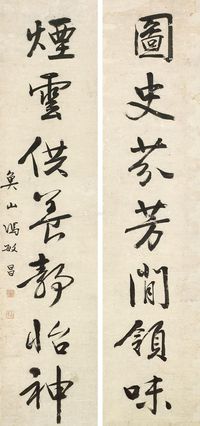 圖史芬芳閒領味
煙雲供養靜怡神
魚山馮敏昌